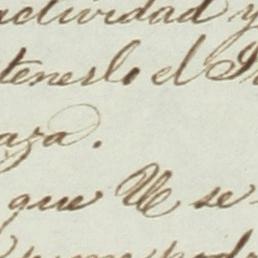 actividad y
tenerlo el
aza.
que Ue se